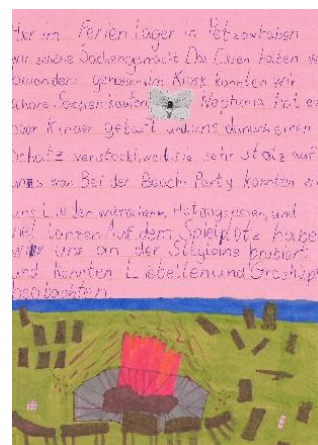 Hier im Ferienlager in Petzow haben
wir schöne Sachen gemacht Das Essen haben w
besonders genossen. Im Kiosk konnten wir
schöne Sachen kaufen Neptunia hat ei
paar Kinder getauft und uns danach einen
Schatz versteckt, weil sie sehr stolz auf
uns war Bei der Beach-Party konnten wi
uns Lieder wünschen, Hotdogs essen, und
viel tanzen Auf dem Spielplatz habe
wir uns an der probiert
und konnten Libellen und Grashüpf
beobachten